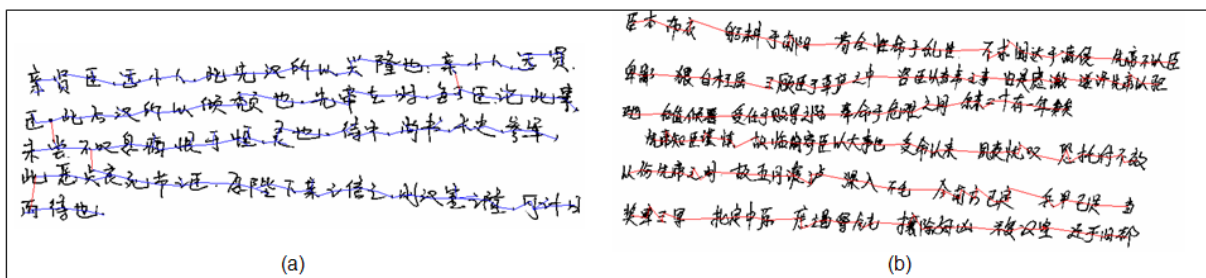 亲贤臣,远小人,此先汉所以兴隆也.亲小人,远贤
臣,此后汉所以倾颓也.先帝在时,每与臣论此事,
未尝不叹息痛恨于桓,灵也.侍中,尚书,长史,参军,
此悉贞良死节之臣 愿陛下亲之信之,则汉室之隆,可计日
而待也.
(a)
臣本布衣 躬耕于南阳 苟全性命于乱世 不求闻达于诸侯 先帝不以臣
卑鄙 猥自枉屈 三顾臣于草庐之中 咨臣以当世之事 由是感激 遂许先帝以驱
驰 后值倾覆 受任于败军之际 奉命于危难之间 尔来二十有一年矣
先帝知臣谨慎 故临崩寄臣以大事也 受命以来 夙夜忧叹 恐托付不效
以伤先帝之明 故五月渡泸 深入不毛 今南方已定 兵甲已足 当
奖率三军 北定中原 庶竭驽钝 攘除奸凶 兴复汉室 还于旧都
(b)